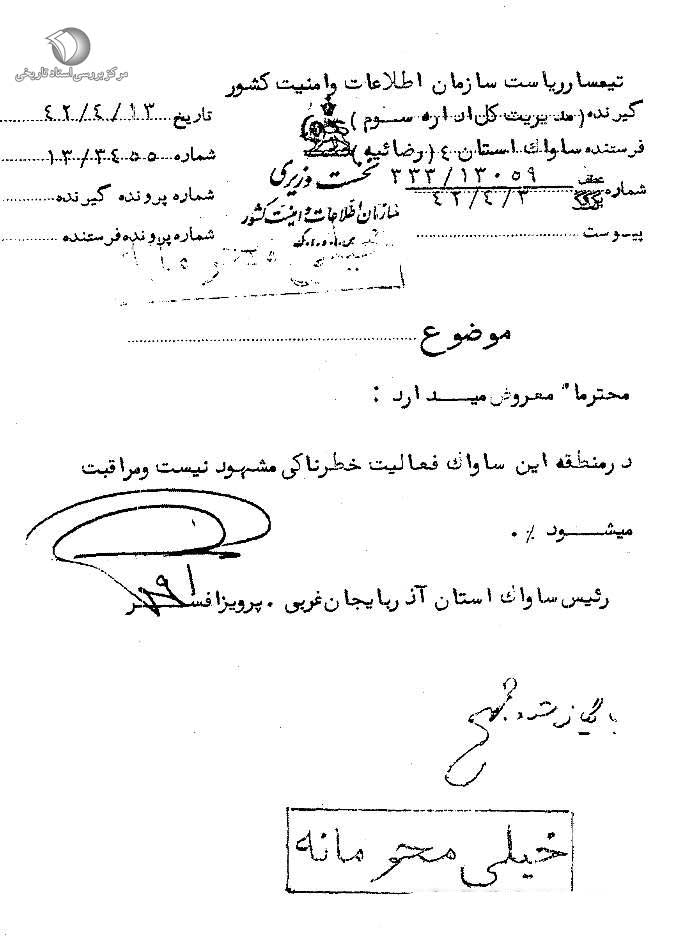 مرکز بررسی اسناد تاریخی
تیمسار ریاست سازمان اطلاعات وامنیت کشور
گیرنده (مدیریت کل اداره سوم)
تاریخ ۴۲/۴/۱۳
فرستنده ساواک استان ۴ (رضائیه)
شماره ۱۳/۳۴۵۵
نخست وزیری
شماره عطف ۳۳۳/۱۳۰۵۹
۴۲/۴/۳
شماره پرونده گیرنده
سازمان اطلاعات و امنیت کشور
س.ا.و.ا.ک
پیوست
شماره پرونده فرستنده
موضوع
محترما" معروض میدارد :
درمنطقه این ساواک فعالیت خطرناکی مشهود نیست ومراقبت
میشود ./
رئیس ساواک استان آذربایجان غربی . پرویزافسر
بایگانی شود
خیلی محرمانه